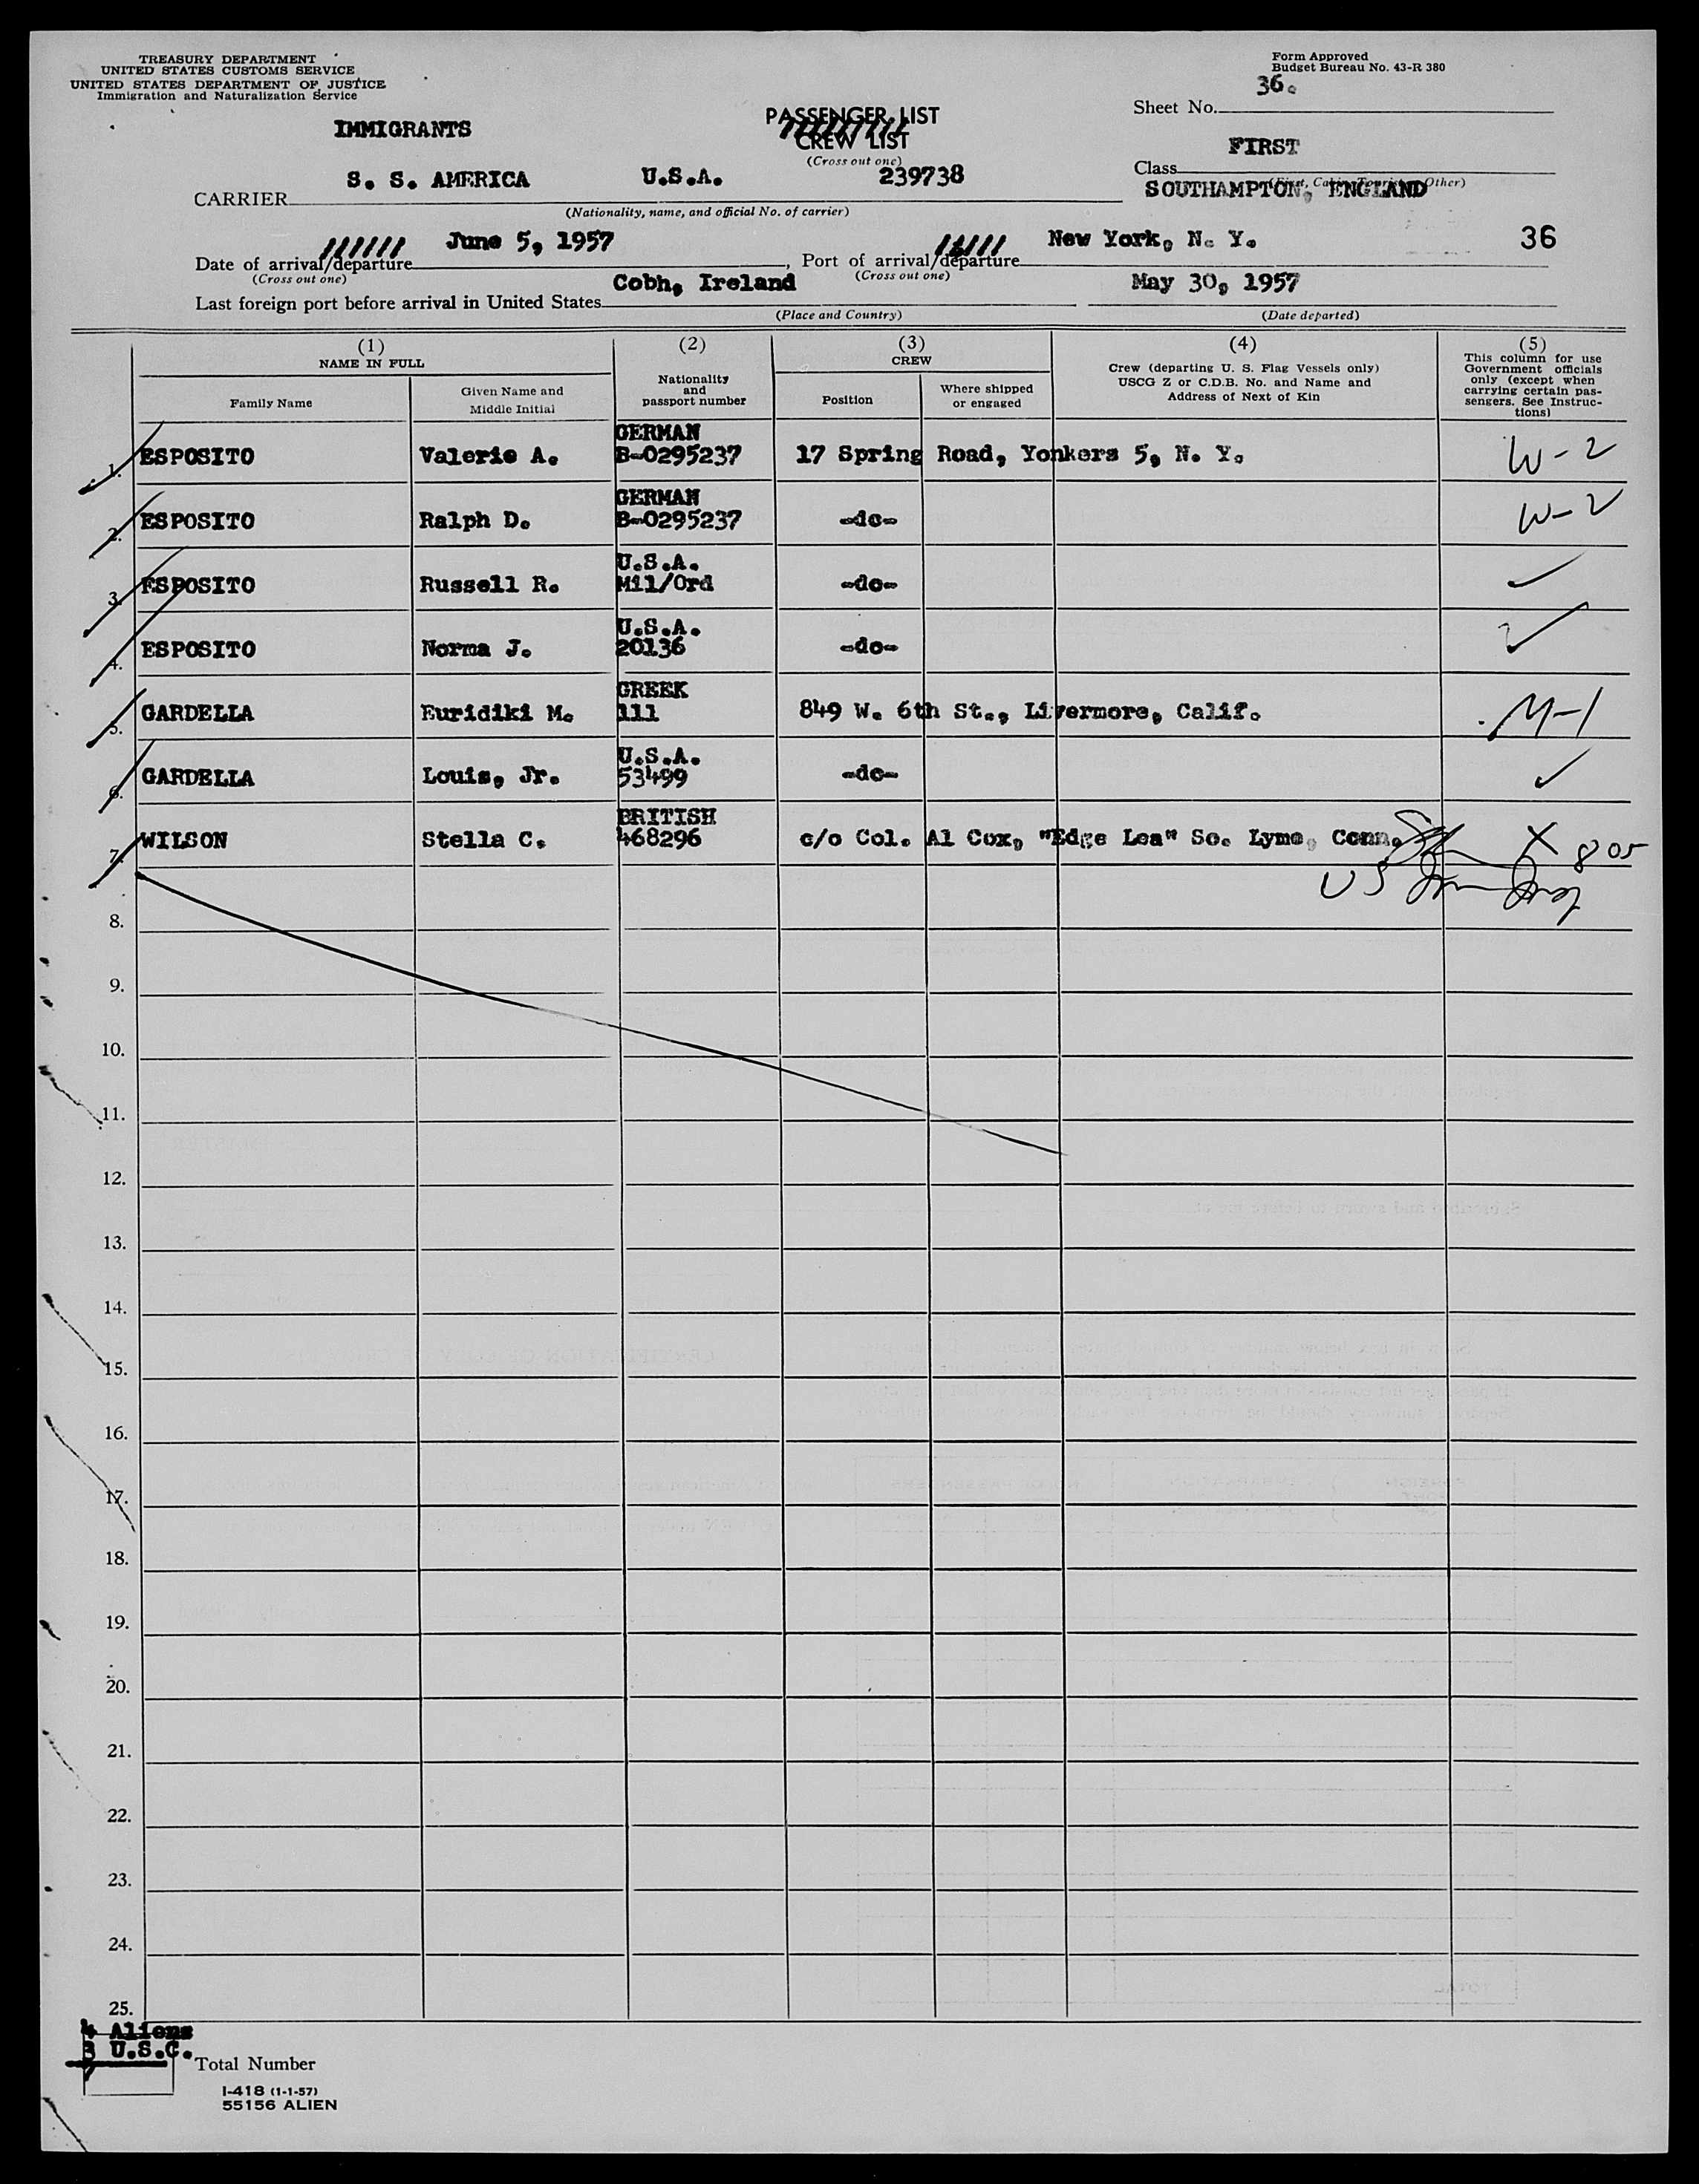 TREASURY DEPARTMENT
UNITED STATES CUSTOMS SERVICE
UNITED STATES DEPARTMENT OF JUSTICE
Immigration and Naturalization Service
Form Approved
Budget Bureau No. 43-R 380
IMMIGRANTS
PASSENGER LIST
CREW LIST
(Cross out one)
Sheet No. 36.
CARRIER S. S. AMERICA U.S.A. 239738
(Nationality, name, and official No. of carrier)
Class FIRST
(First, Cabin, Tourist, Other)
SOUTHAMPTON, ENGLAND
Date of arrival/departure June 5, 1957, Port of arrival/departure New York, N. Y.
36
(Cross out one) (Cross out one)
Last foreign port before arrival in United States Cobh, Ireland May 30, 1957
(Place and Country) (Date departed)
(1)
NAME IN FULL
Family Name
Given Name and Middle Initial
(2)
Nationality and passport number
(3)
CREW
Position
Where shipped or engaged
(4)
Crew (departing U. S. Flag Vessels only)
USCG Z or C.D.B. No. and Name and
Address of Next of Kin
(5)
This column for use
Government officials
only (except when
carrying certain pas-
sengers. See Instruc-
tions)
1. ESPOSITO Valerie A. GERMAN B-0295237 17 Spring Road, Yonkers 5, N. Y. W-2
2. ESPOSITO Ralph D. GERMAN B-0295237 -do- W-2
3. ESPOSITO Russell R. U.S.A. Mil/Ord -do-
4. ESPOSITO Norma J. U.S.A. 20136 -do-
5. GARDELLA Euridiki M. GREEK 111 849 W. 6th St., Livermore, Calif. M-1
6. GARDELLA Louis, Jr. U.S.A. 53499 -do-
7. WILSON Stella C. BRITISH 468296 c/o Col. Al Cox, "Edge Lea" So. Lyme, Conn. X 805
US Imm Insp
8.
9.
10.
11.
12.
13.
14.
15.
16.
17.
18.
19.
20.
21.
22.
23.
24.
25.
4 Aliens
3 U.S.C.
7
Total Number
I-418 (1-1-57)
55156 ALIEN